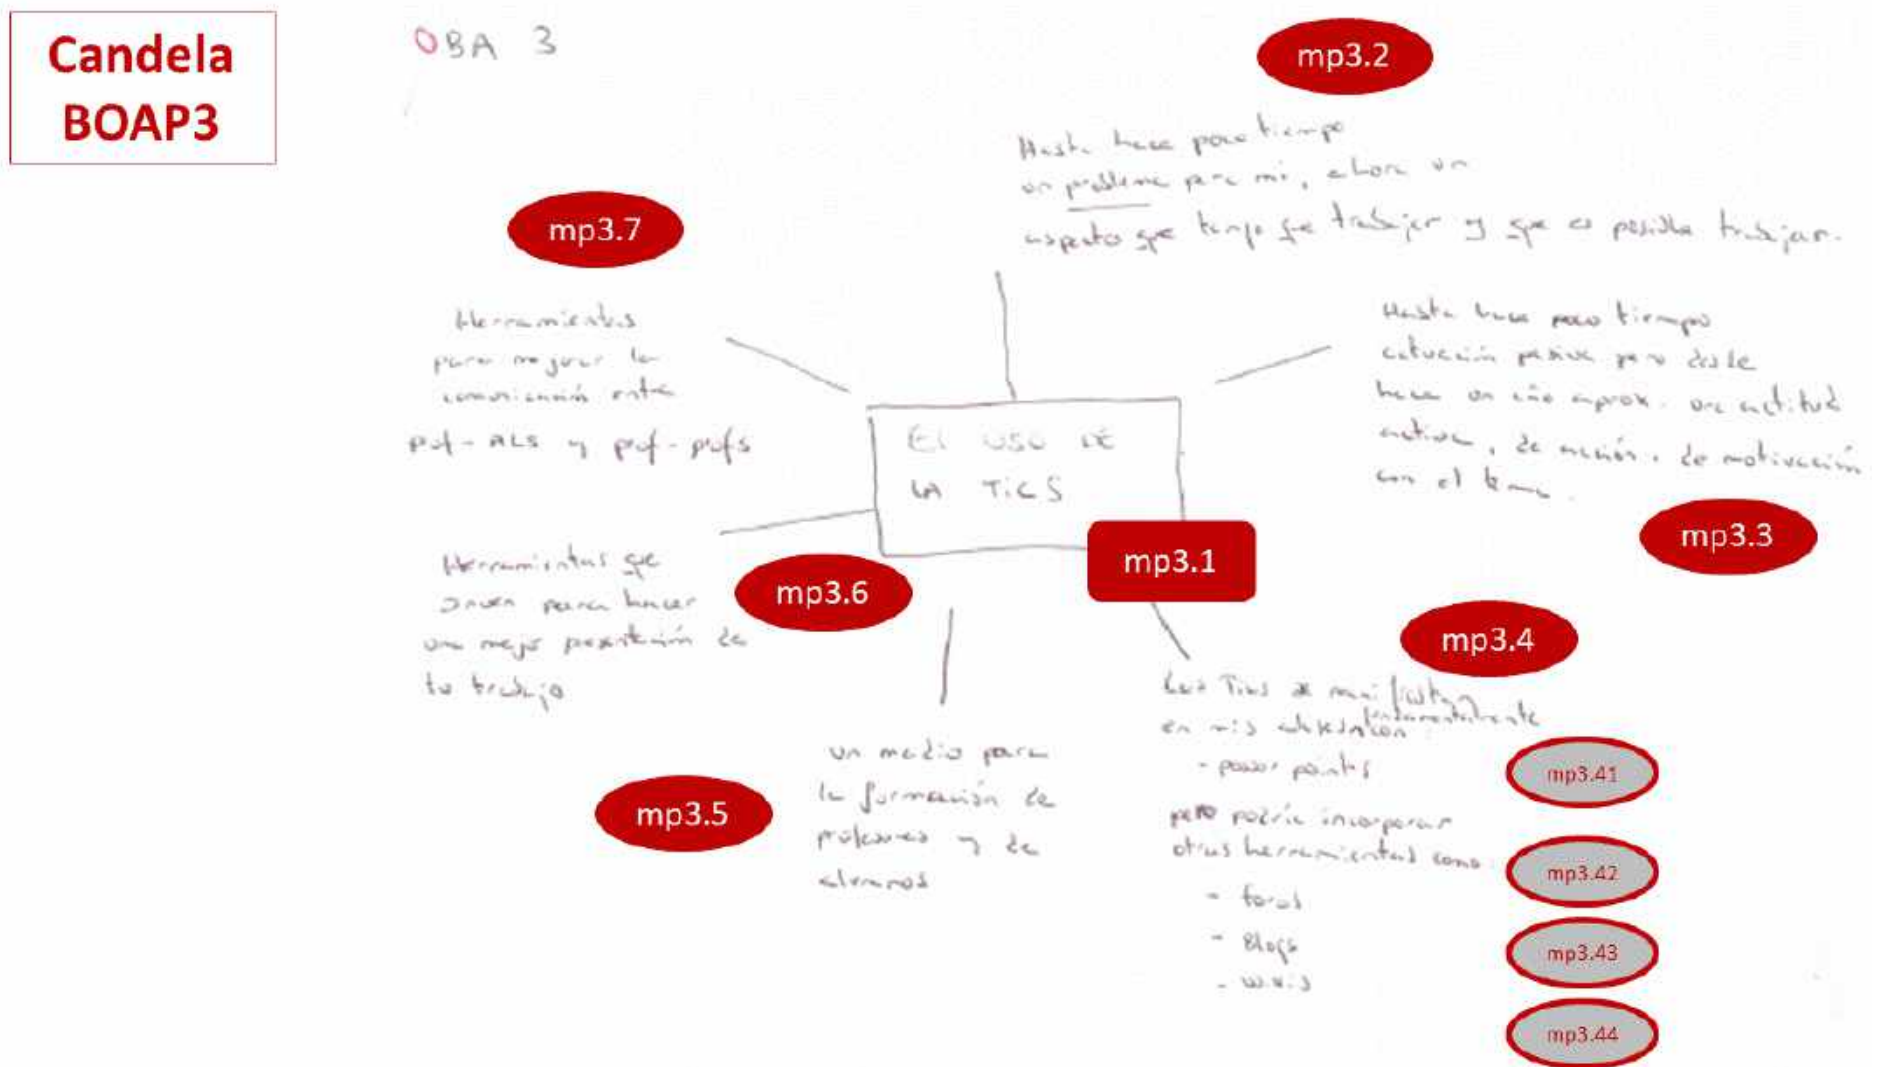 Candela
BOAP3
OBA 3
mp3.2
Hasta hace poco tiempo
un problema para mi, ahora un
aspectos que tengo que trabajar y que es posible trabajar.
mp3.7
Herramientas
para mejorar la
comunicación entre
prof-ALS y prof-profs
Hasta hace poco tiempo
actuación pasiva pero desde
hace un año aprox. una actitud
activa, de acción, de motivación
con el tema.
mp3.3
El USO DE
LA TICS
mp3.1
Herramientas que
sirven para hacer
una mejor presentación de
tu trabajo
mp3.6
mp3.4
Las Tics se manifiestan
fundamentalmente
en mis con
- power points
mp3.41
pero podría incorporar
otras herramientas como:
mp3.42
- foros
- Blogs
mp3.43
- wikis
mp3.44
mp3.5
un medio para
la formación de
profesores y de
alumnos